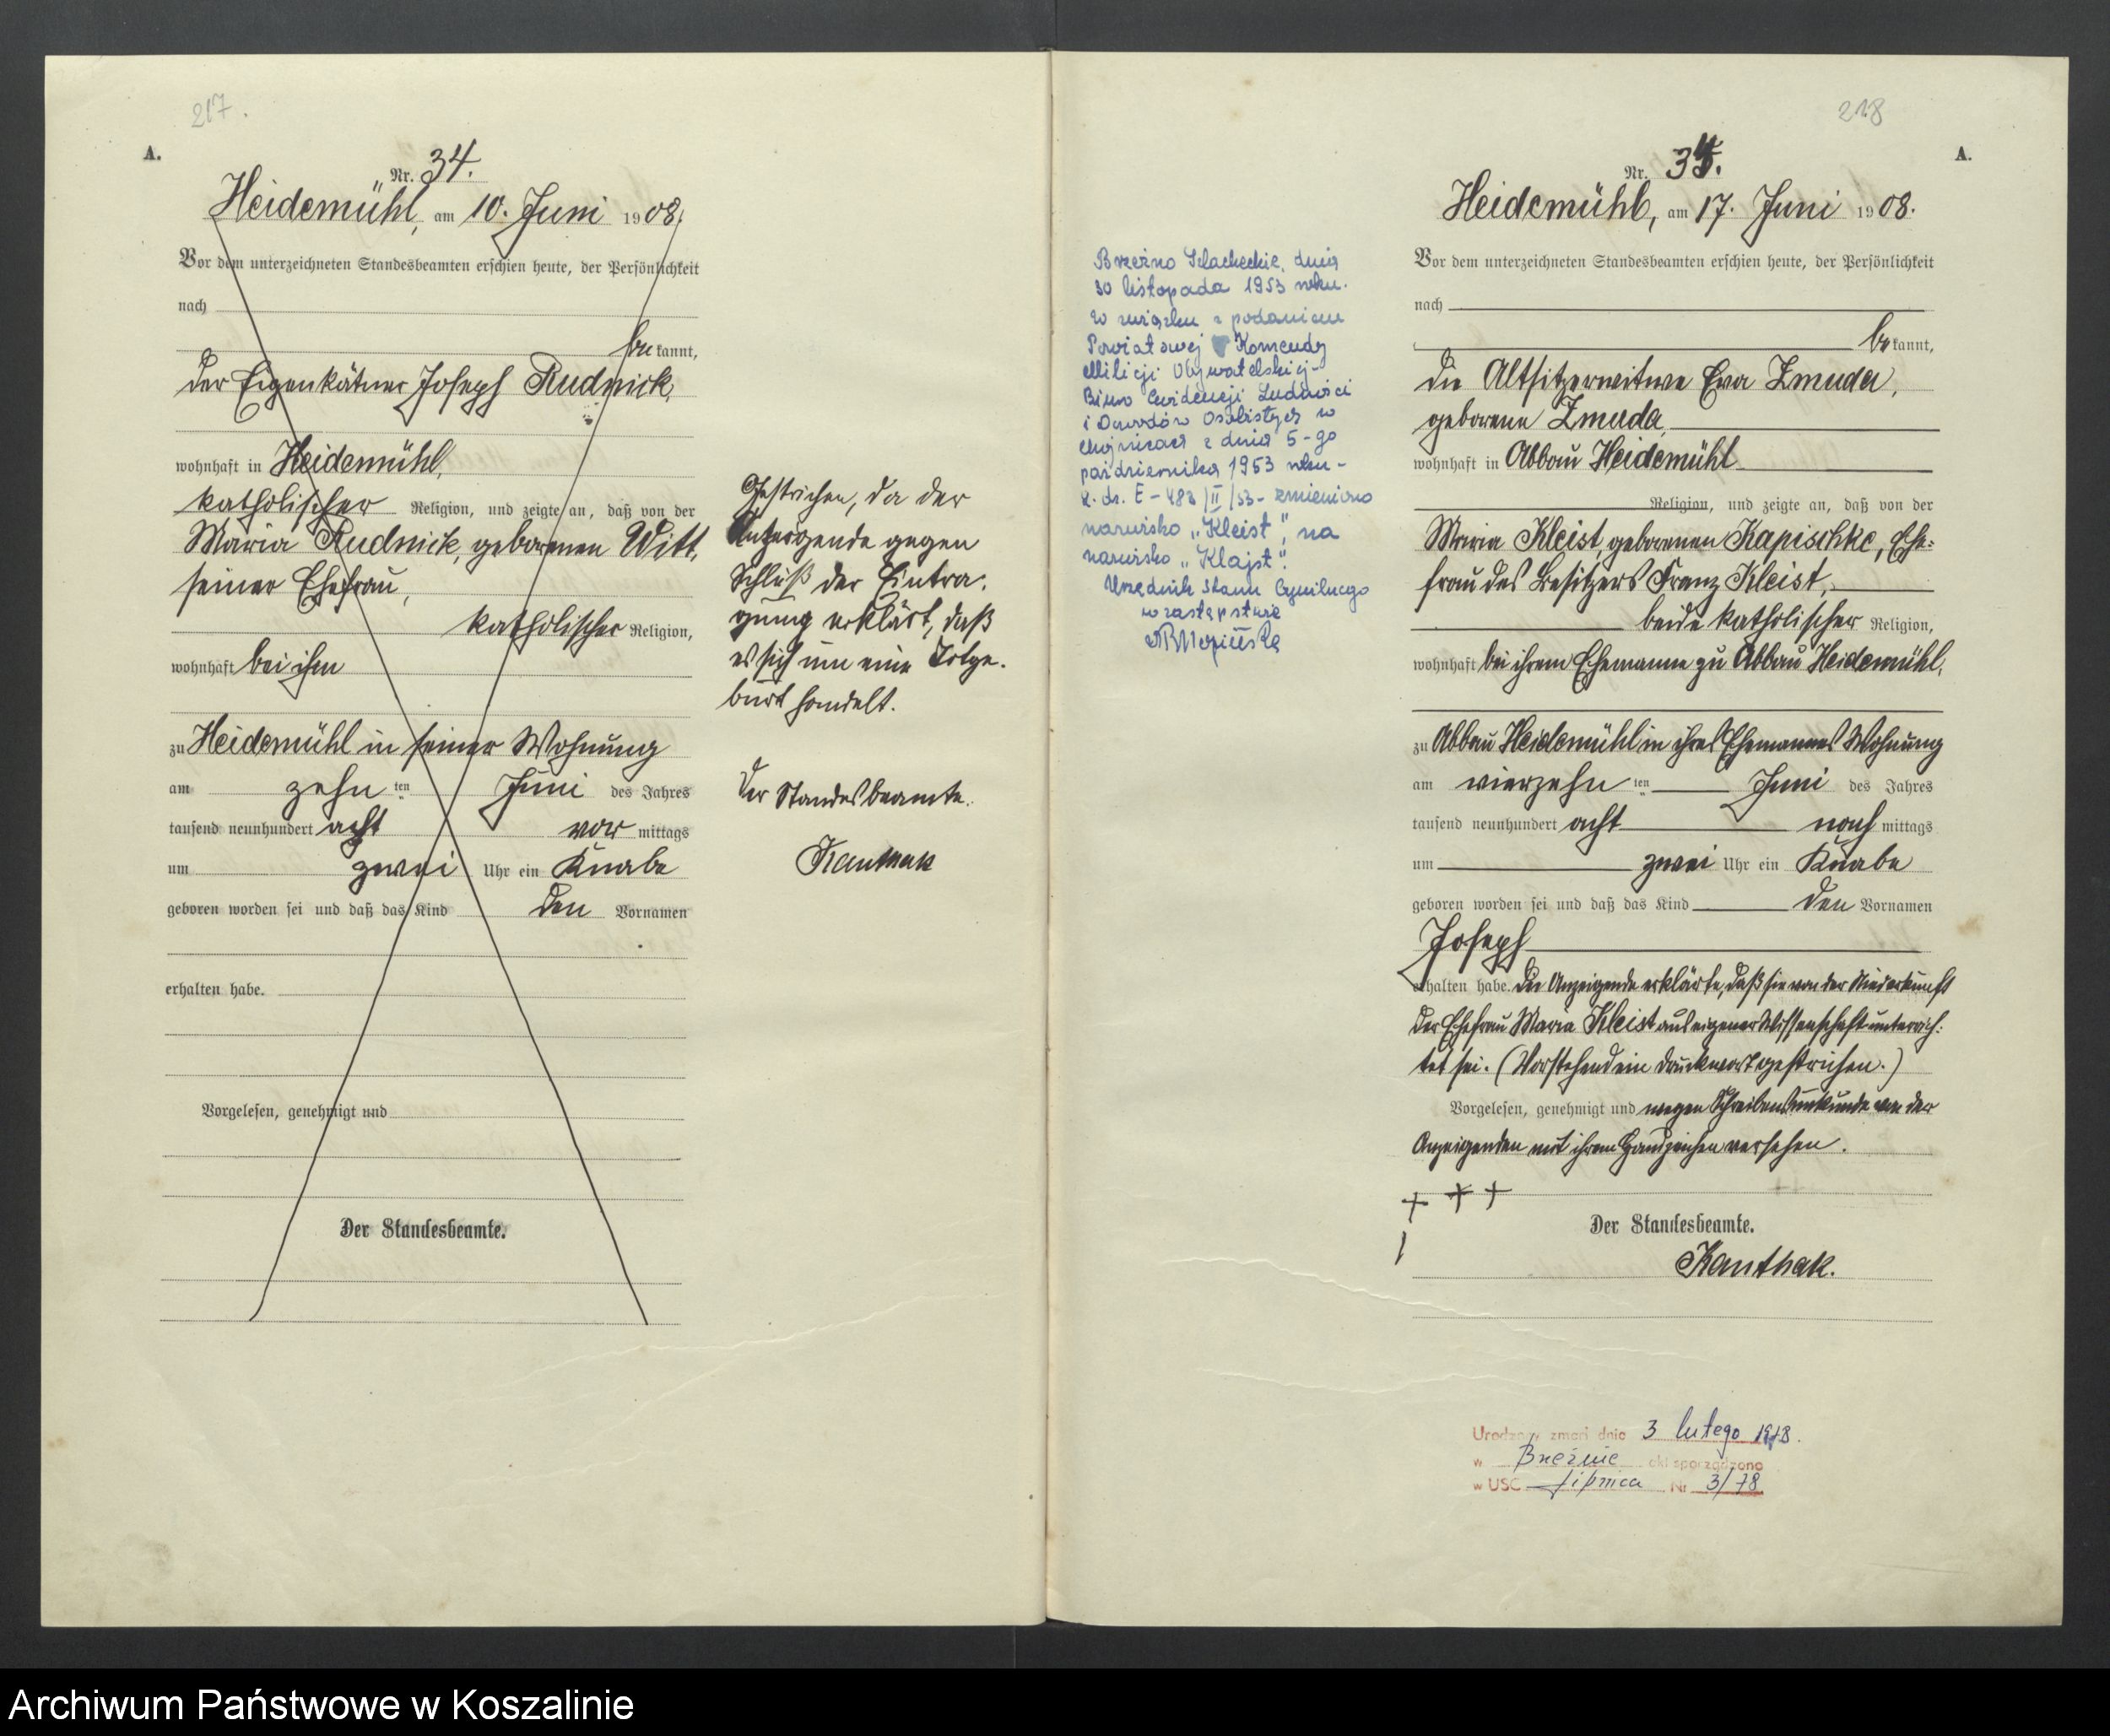 217.
A.
Nr. 34.
Heidemühl, am 10. Juni 1908.
Vor dem unterzeichneten Standesbeamten erschien heute, der Persönlichkeit
nach
bekannt,
der Eigenkätner Joseph Rudnick,
wohnhaft in Heidemühl,
katholischer Religion, und zeigte an, daß von der
Maria Rudnick, geborenen Witt,
seiner Ehefrau,
katholischer Religion,
wohnhaft bei ihm
zu Heidemühl in seiner Wohnung
am zehnten Juni des Jahres
tausend neunhundert acht vormittags
um zwei Uhr ein Knabe
geboren worden sei und daß das Kind den Vornamen
erhalten habe.
Vorgelesen, genehmigt und
Der Standesbeamte.
Gestrichen, da der
Anzeigende gegen
Schluß der Eintra-
gung erklärt, daß
es sich um eine Totge-
burt handelt.
Der Standesbeamte.
Kanthak
218
A.
Nr. 34.
Heidemühl, am 17. Juni 1908.
Vor dem unterzeichneten Standesbeamten erschien heute, der Persönlichkeit
nach
bekannt,
die Altsitzerwitwe Eva Zmuda,
geborene Zmuda,
wohnhaft in Abbau Heidemühl
Religion, und zeigte an, daß von der
Maria Kleist, geborenen Kapischke, Ehe-
frau des Besitzers Franz Kleist,
beide katholischer Religion,
wohnhaft bei ihrem Ehemanne zu Abbau Heidemühl,
zu Abbau Heidemühl in ihres Ehemannes Wohnung
am vierzehnten Juni des Jahres
tausend neunhundert acht nachmittags
um zwei Uhr ein Knabe
geboren worden sei und daß das Kind den Vornamen
Joseph
erhalten habe. Die Anzeigende erklärte, daß sie von der Niederkunft
der Ehefrau Maria Kleist aus eigener Wissenschaft unterrich-
tet sei. (Vorstehend ein Druckwort gestrichen.)
Vorgelesen, genehmigt und wegen Schreibensunkunde von der
Anzeigenden mit ihrem Handzeichen versehen.
+ + +
Der Standesbeamte.
Kanthak.
Brzeźno Szlacheckie, dnia
30 listopada 1953 roku.
W związku z podaniem
Powiatowej Komendy
Milicji Obywatelskiej -
Biuro Ewidencji Ludności
i Dowodów Osobistych w
Chojnicach z dnia 5-go
października 1953 roku -
L. dz. E-483/II/53 - zmieniono
nazwisko "Kleist", na
nazwisko "Klajst".
Urzędnik Stanu Cywilnego
w zastępstwie
Urodzony zmarł dnia 3 lutego 1978.
w Brzeźnie akt sporządzono
w USC Lipnica Nr 3/78
Archiwum Państwowe w Koszalinie